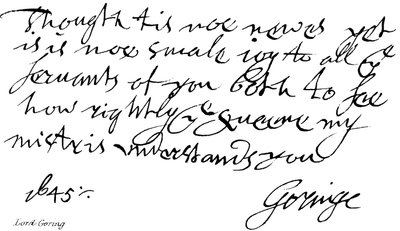 Though t is noe newes yet
is is noe smale ioy to all ye
servants of you both to see
how rightly ye Queene my
mistris understands you
1645:~
Goringe
Lord Goring